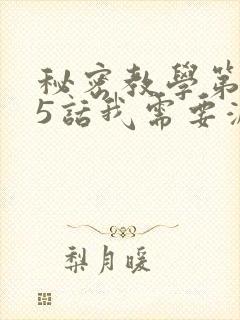 秘密教學第
5話我需要
梨月暖